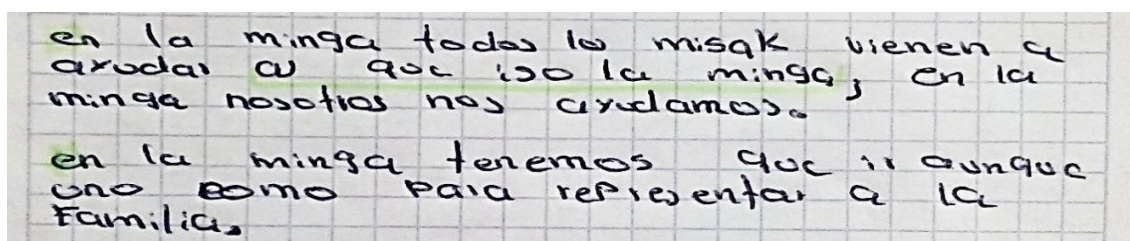 en la minga todos lo misak vienen a
ayudar al que iso la minga, en la
minga nosotros nos ayudamos.
en la minga tenemos que ir aunque
uno como para representar a la
Familia.